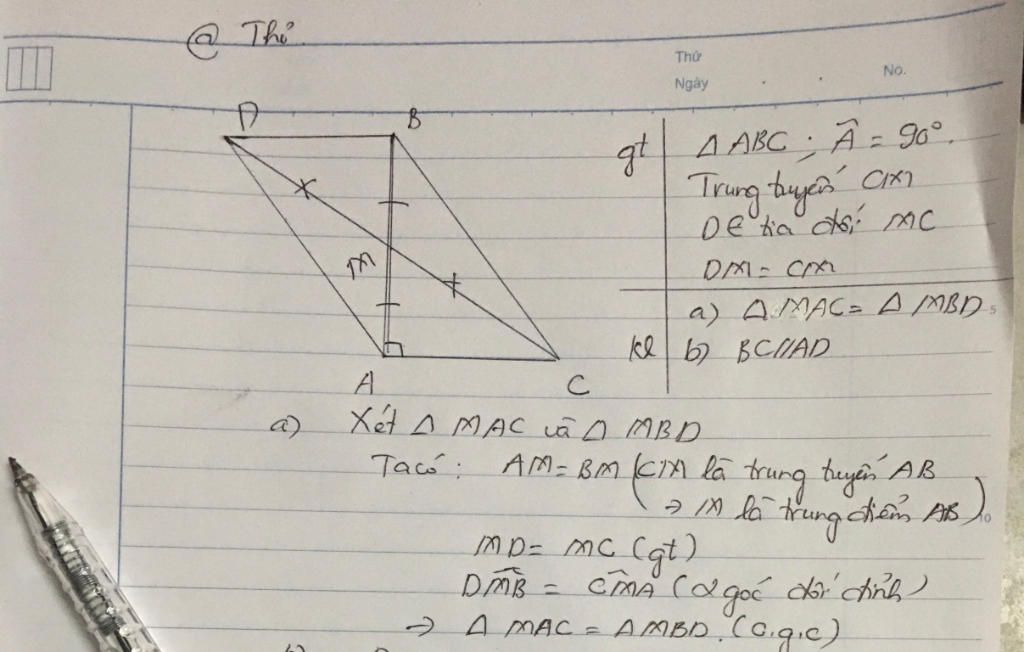 @ Thi.
Thứ
Ngày . .
No.
D B
M
A C
gt ΔABC ; Â = 90°.
Trung tuyến CM
D∈ tia đối MC
DM = CM
a) ΔMAC = ΔMBD 5
kl b) BC//AD
a) Xét Δ MAC và Δ MBD
Ta có : AM = BM (CM là trung tuyến AB
→ M là trung điểm AB) 10
MD = MC (gt)
DM̂B = CM̂A (2 góc đối đỉnh)
→ Δ MAC = ΔMBD. (c.g.c)